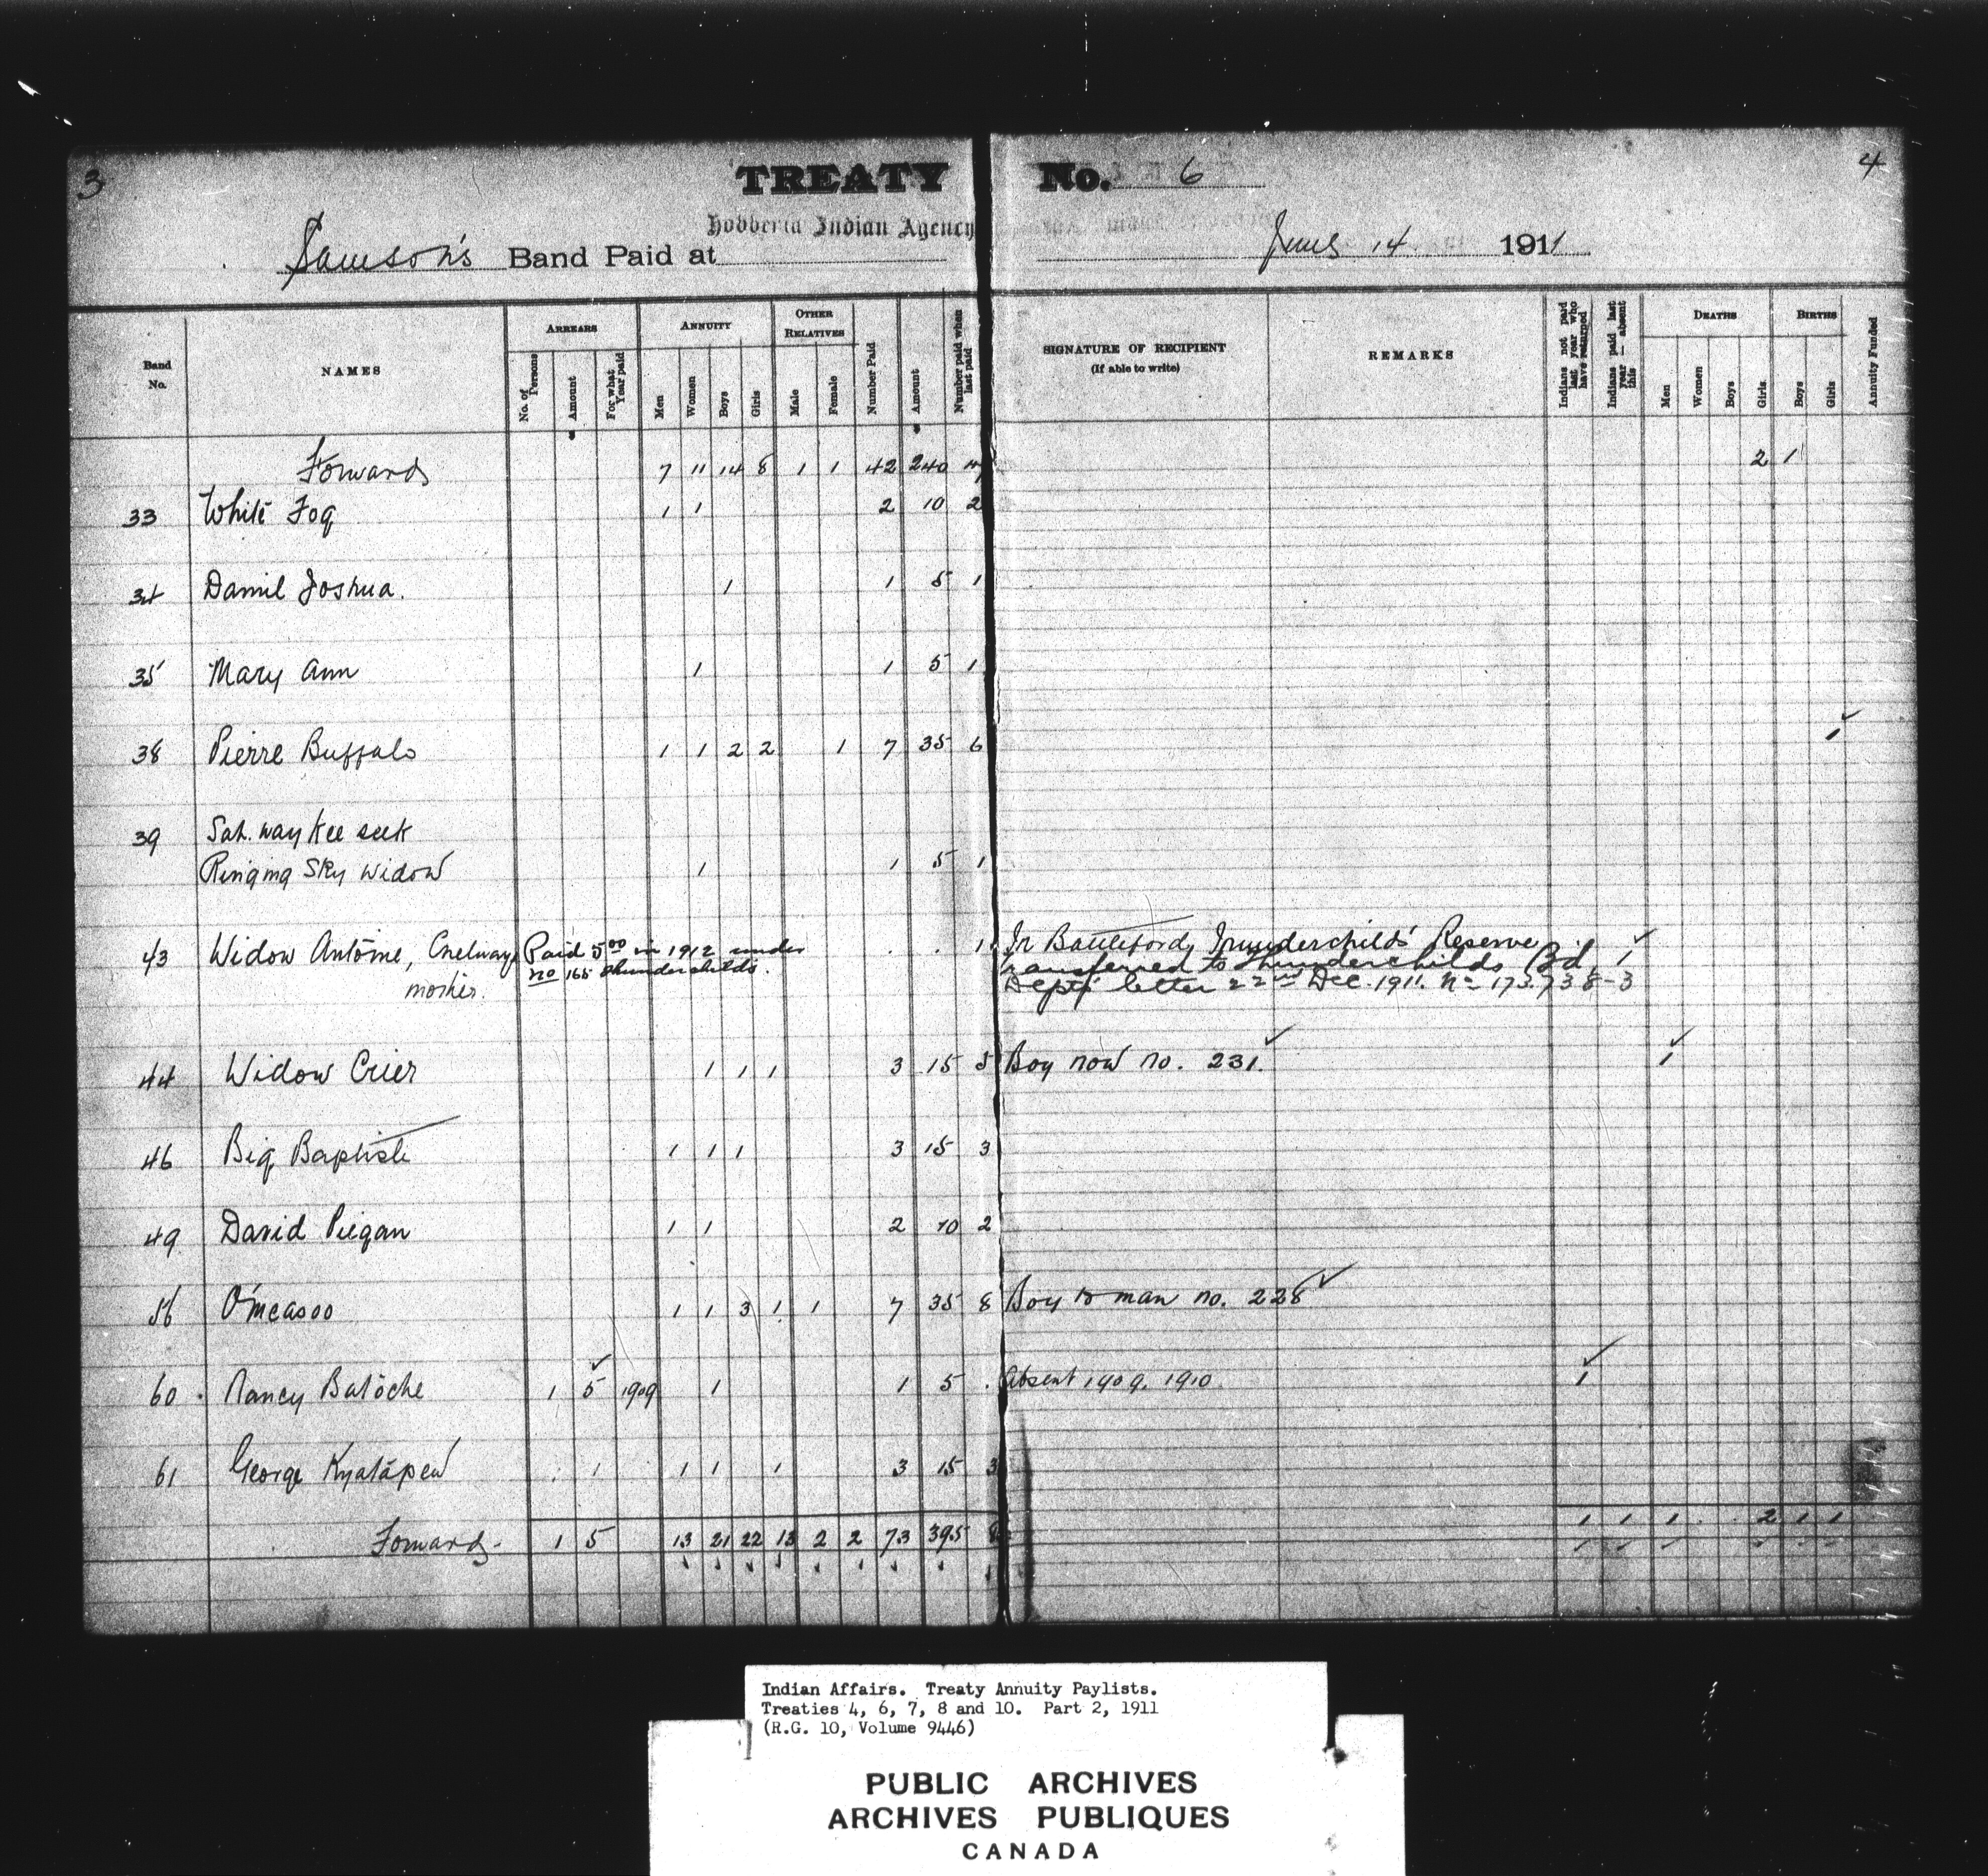 3
TREATY No. 6
4
Hobbema Indian Agency
Samson's Band Paid at June 14 1911
Band No.
NAMES
ARREARS
No. of Persons
Amount
For what Year paid
ANNUITY
Men
Women
Boys
Girls
OTHER RELATIVES
Male
Female
Number Paid
Amount
Number paid when last paid
SIGNATURE OF RECIPIENT
(If able to write)
REMARKS
Indians not paid last year who have returned
Indians paid last year — absent this
DEATHS
Men
Women
Boys
Girls
BIRTHS
Boys
Girls
Annuity Funded
Forward 7 11 14 8 1 1 42 240 2 1
33 White Fog 1 1 2 10 2
34 Daniel Joshua. 1 1 5 1
35 Mary Ann 1 1 5 1
38 Pierre Buffalo 1 1 2 2 1 7 35 6 1
39 Sah. way kee seek
Ringing Sky Widow 1 1 5 1
43 Widow Antoine, mother. 1 1
Paid 5 00 in 1912 under
no 165 Thunderchilds.
In Battleford, Thunderchilds' Reserve
transferred to Thunderchilds Bd.
Dept letter 22nd Dec. 1911. No 173.738-3
44 Widow Crier 1 1 1 3 15 5 Boy now no. 231. 1
46 Big Baptiste 1 1 1 3 15 3
49 David Piegan 1 1 2 10 2
56 O'measoo 1 1 3 1 1 7 35 8 Boy to man no. 228
60 Nancy Batoche 1 5 1909 1 1 5 Absent 1909. 1910. 1
61 George Kyatapew 1 1 1 3 15 3
Forward 1 5 13 21 22 13 2 2 73 395 1 1 1 2 1 1
Indian Affairs. Treaty Annuity Paylists.
Treaties 4, 6, 7, 8 and 10. Part 2, 1911
(R.G. 10, Volume 9446)
PUBLIC ARCHIVES
ARCHIVES PUBLIQUES
CANADA